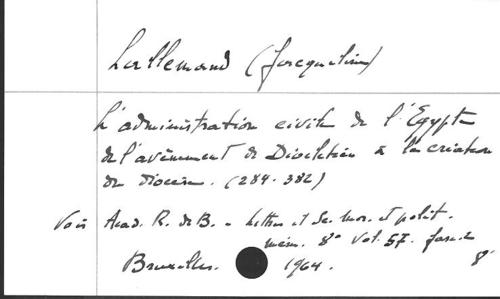 Lallemand (Jacqueline)
L'administration civile de l'Égypte
de l'avènement de Dioclétien à la création
du diocèse. (284-382)
Voir Acad. R. de B. - Lettres et Sc. mor. et polit.
mém. 8° vol. 57. fasc. 2
Bruxelles. 1964. 8°